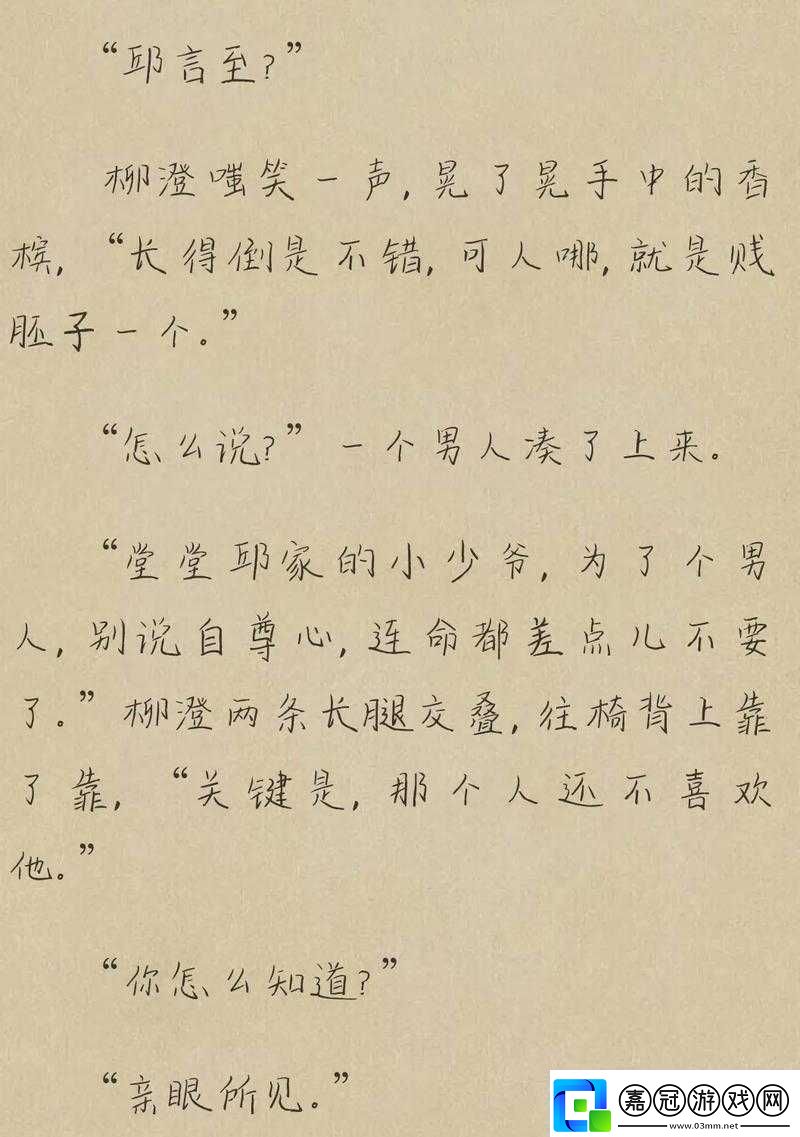 “邱言至？”
柳澄嗤笑一声，晃了晃手中的香
槟，“长得倒是不错，可人哪，就是贱
胚子一个。”
“怎么说？” 一个男人凑了上来。
“堂堂邱家的小少爷，为了个男
人，别说自尊心，连命都差点儿不要
了。” 柳澄两条长腿交叠，往椅背上靠
了靠，“关键是，那个人还不喜欢
他。”
“你怎么知道？”
“亲眼所见。”
嘉冠游戏网
www.03mm.net